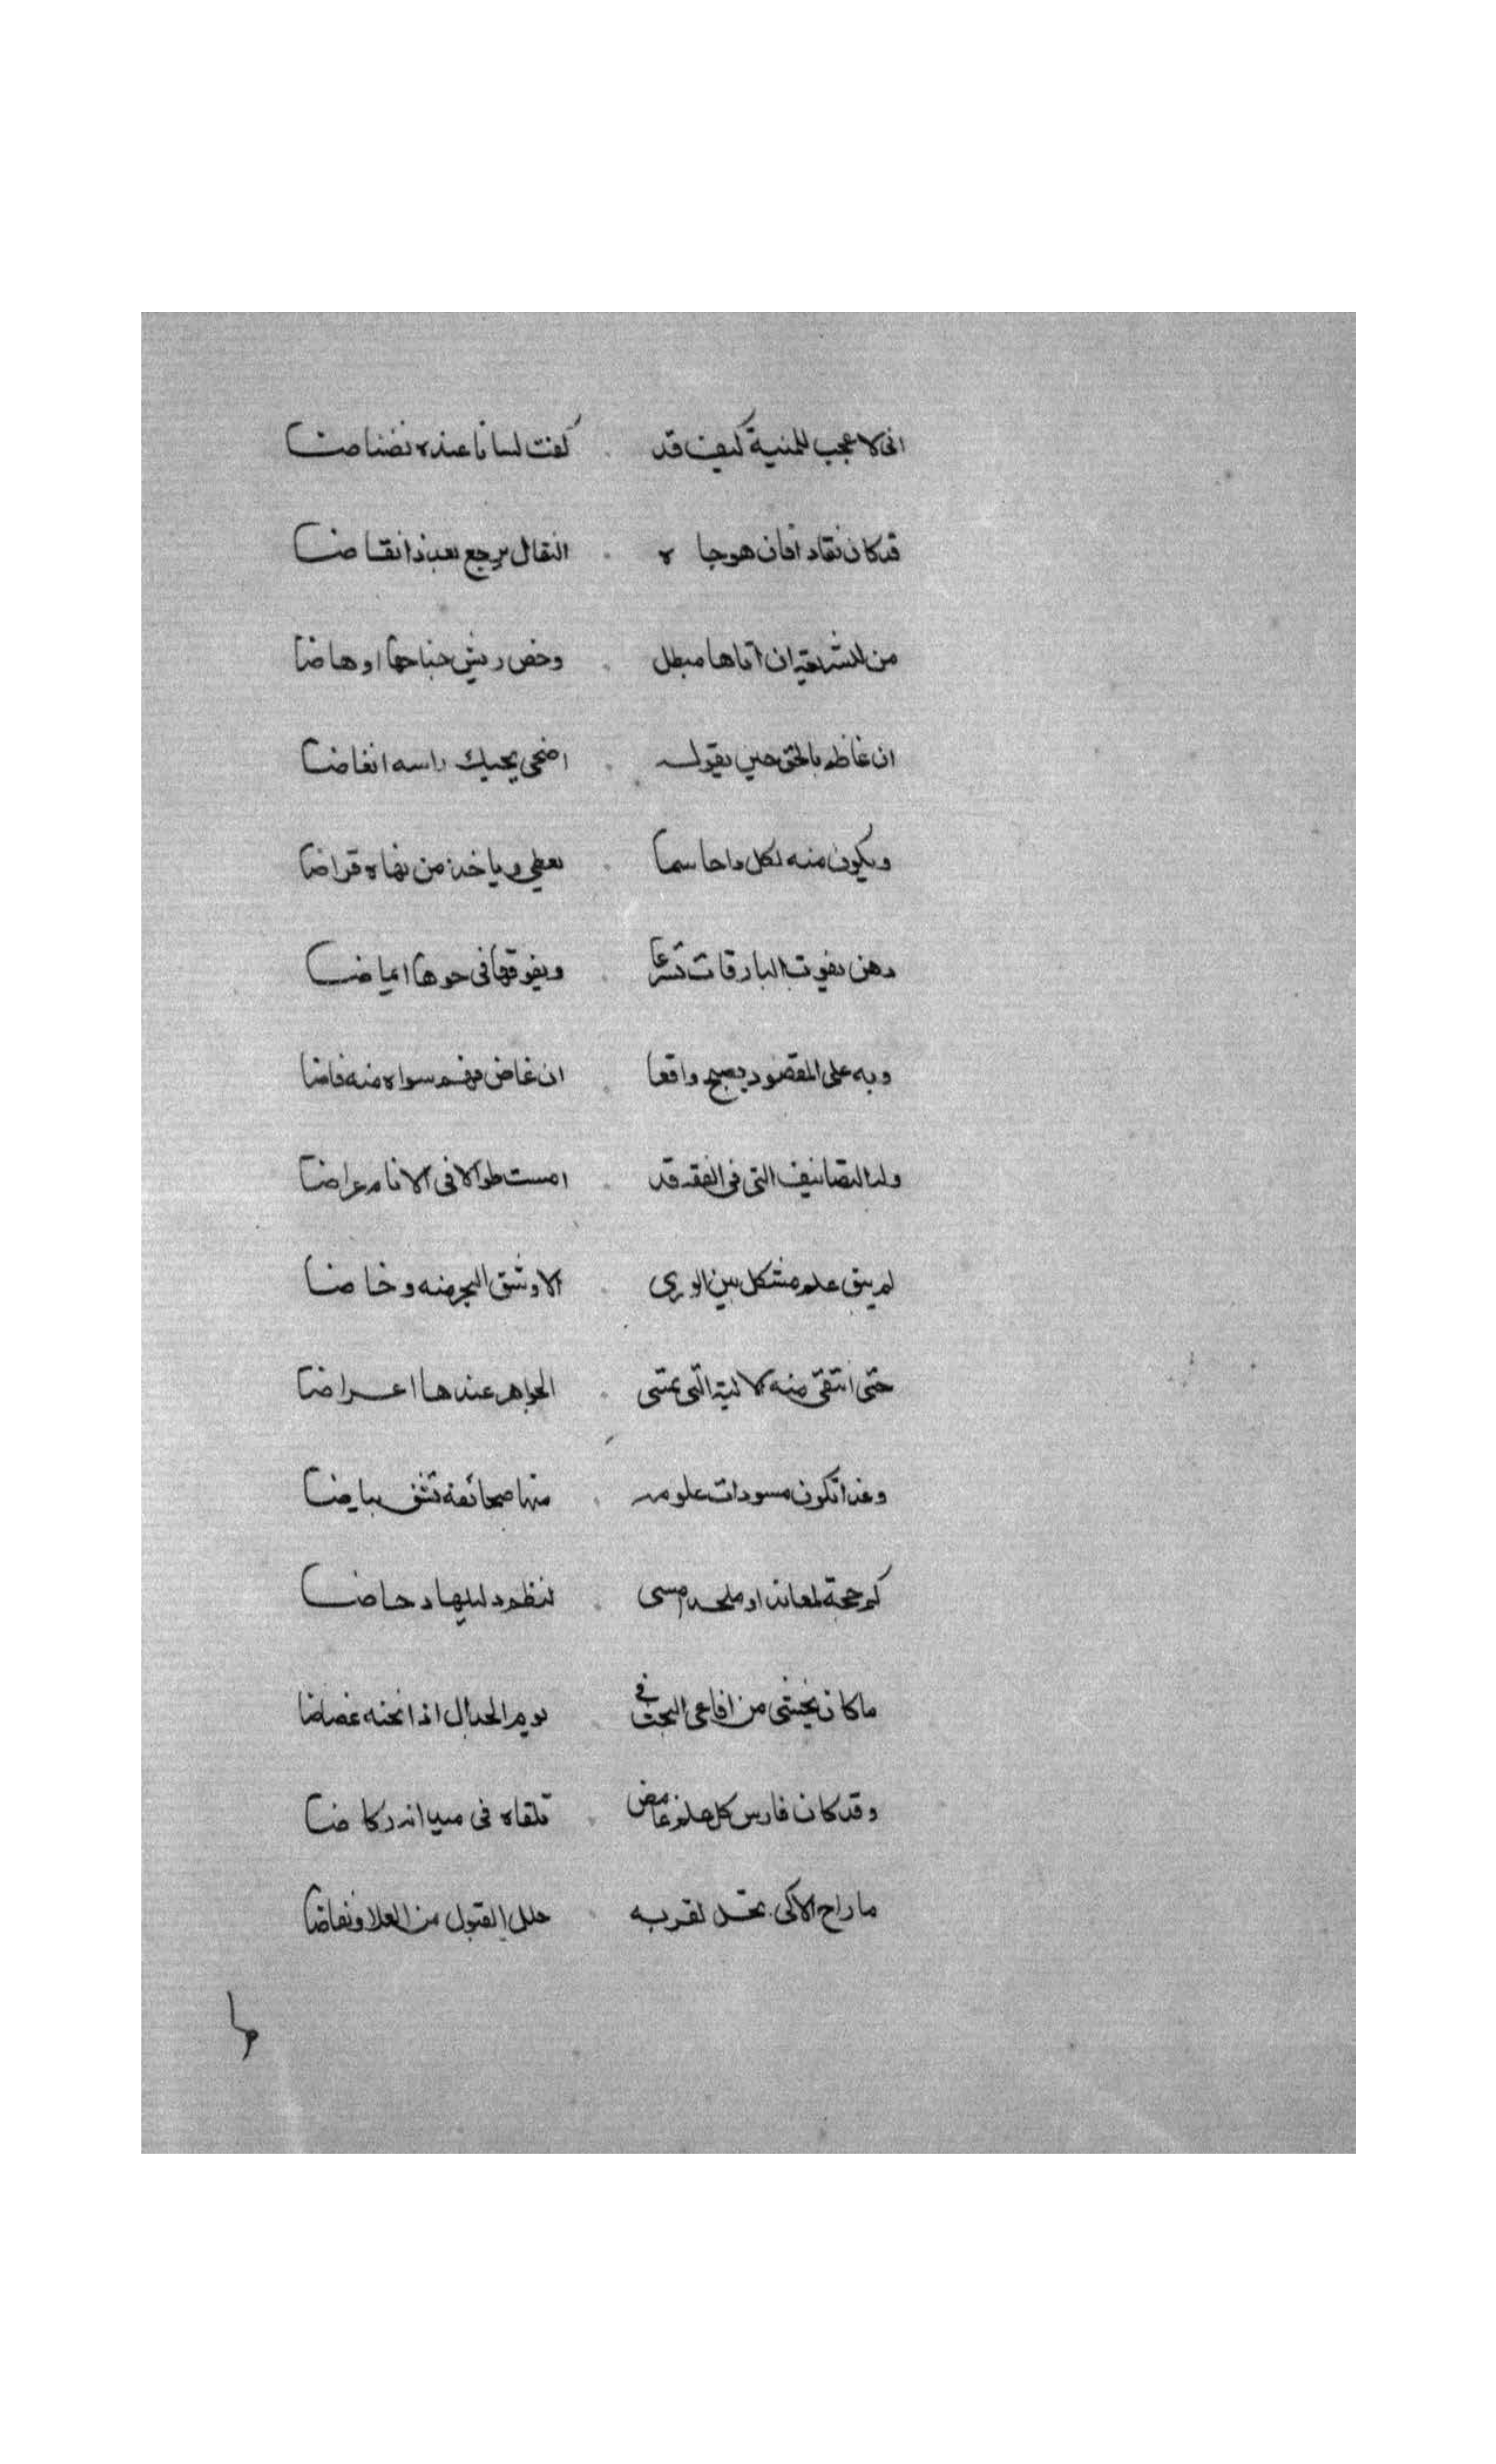 انى لاعجب للمنية كيف قد كفت لسانا عنده نضناضا
قد كان نقاد افان هو جاه النقال يرجع بعد ذا نقاضا
من للشريعة ان اتاها مبطل وحص ريش جناحها اوهاضا
ان غاظه بالحق حين يقوله اضحى يحرك راسه انغاضا
ويكون منه لكل داحاسما يعطى وياخذ من نهاه قراضا
ذهن يفوت البارقات تسرعا ويفوقها فى جوها ايماضا
وبه على المقصود يصبح واقعا ان غاض فهم سواه منه فاضا
وله التصانيف التى فى الفقه قد امست طوالا فى الانام عراضا
لم يبق علم مشكل بين الورى الا وشق البحر منه وخاضا
حتى انتقى منه لاليه التى تمشى الجواهر عندها اعراضا
وغدا تكون مسودات علومه منها صحائفه تشف بياضا
كم حجة لمعاند او ملحد امسى لنظم دليلها دحاضا
ما كان يخشى من افاعى البحث فى يوم الجدال اذا نحنه عضاضا
وقد كان فارس كل علم غامض تلقاه فى ميدانه ركاضا
ما راح الا كى تحل لقربه حلل القبول من العلا ونفاضا